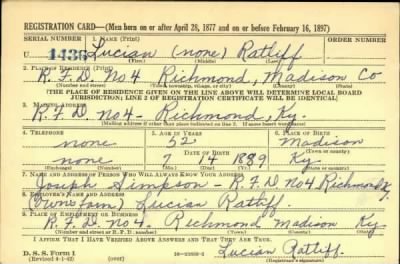 REGISTRATION CARD—(Men born on or after April 28, 1877 and on or before February 16, 1897)
SERIAL NUMBER 1. NAME (Print) ORDER NUMBER
1436 Lucian (none) Ratliff
(First) (Middle) (Last)
2. PLACE OF RESIDENCE (Print)
R.F.D. No 4 Richmond, Madison Co
(Number and street) (Town, township, village, or city) (County) (State)
[THE PLACE OF RESIDENCE GIVEN ON THE LINE ABOVE WILL DETERMINE LOCAL BOARD
JURISDICTION; LINE 2 OF REGISTRATION CERTIFICATE WILL BE IDENTICAL]
3. MAILING ADDRESS
R.F.D. No 4 - Richmond, Ky.
(Mailing address if other than place indicated on line 2. If same insert word same)
4. TELEPHONE 5. AGE IN YEARS 6. PLACE OF BIRTH
none 52 Madison
DATE OF BIRTH (Town or county)
none 7 14 1889 Ky.
(Exchange) (Number) (Mo.) (Day) (Yr.) (State or country)
7. NAME AND ADDRESS OF PERSON WHO WILL ALWAYS KNOW YOUR ADDRESS
Joseph Simpson - R.F.D. No 4 Richmond Ky.
8. EMPLOYER'S NAME AND ADDRESS
(Own Farm) Lucian Ratliff
9. PLACE OF EMPLOYMENT OR BUSINESS
R.F.D. No 4. Richmond Madison Ky.
(Number and street or R. F. D. number) (Town) (County) (State)
I AFFIRM THAT I HAVE VERIFIED ABOVE ANSWERS AND THAT THEY ARE TRUE.
D. S. S. Form 1 Lucian Ratliff
(Revised 4-1-42) (over) (Registrant's signature)